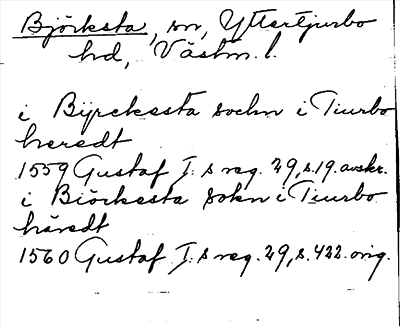 Björksta, sn, Yttertjurbo
hd, Västm. l.
i Byrckesta sochn i Tiurbo
heredt
1559 Gustaf I:s reg. 29, s. 19. avskr.
i Biörkesta sokn i Tiurbo
häredt
1560 Gustaf I:s reg. 29, s. 422. orig.